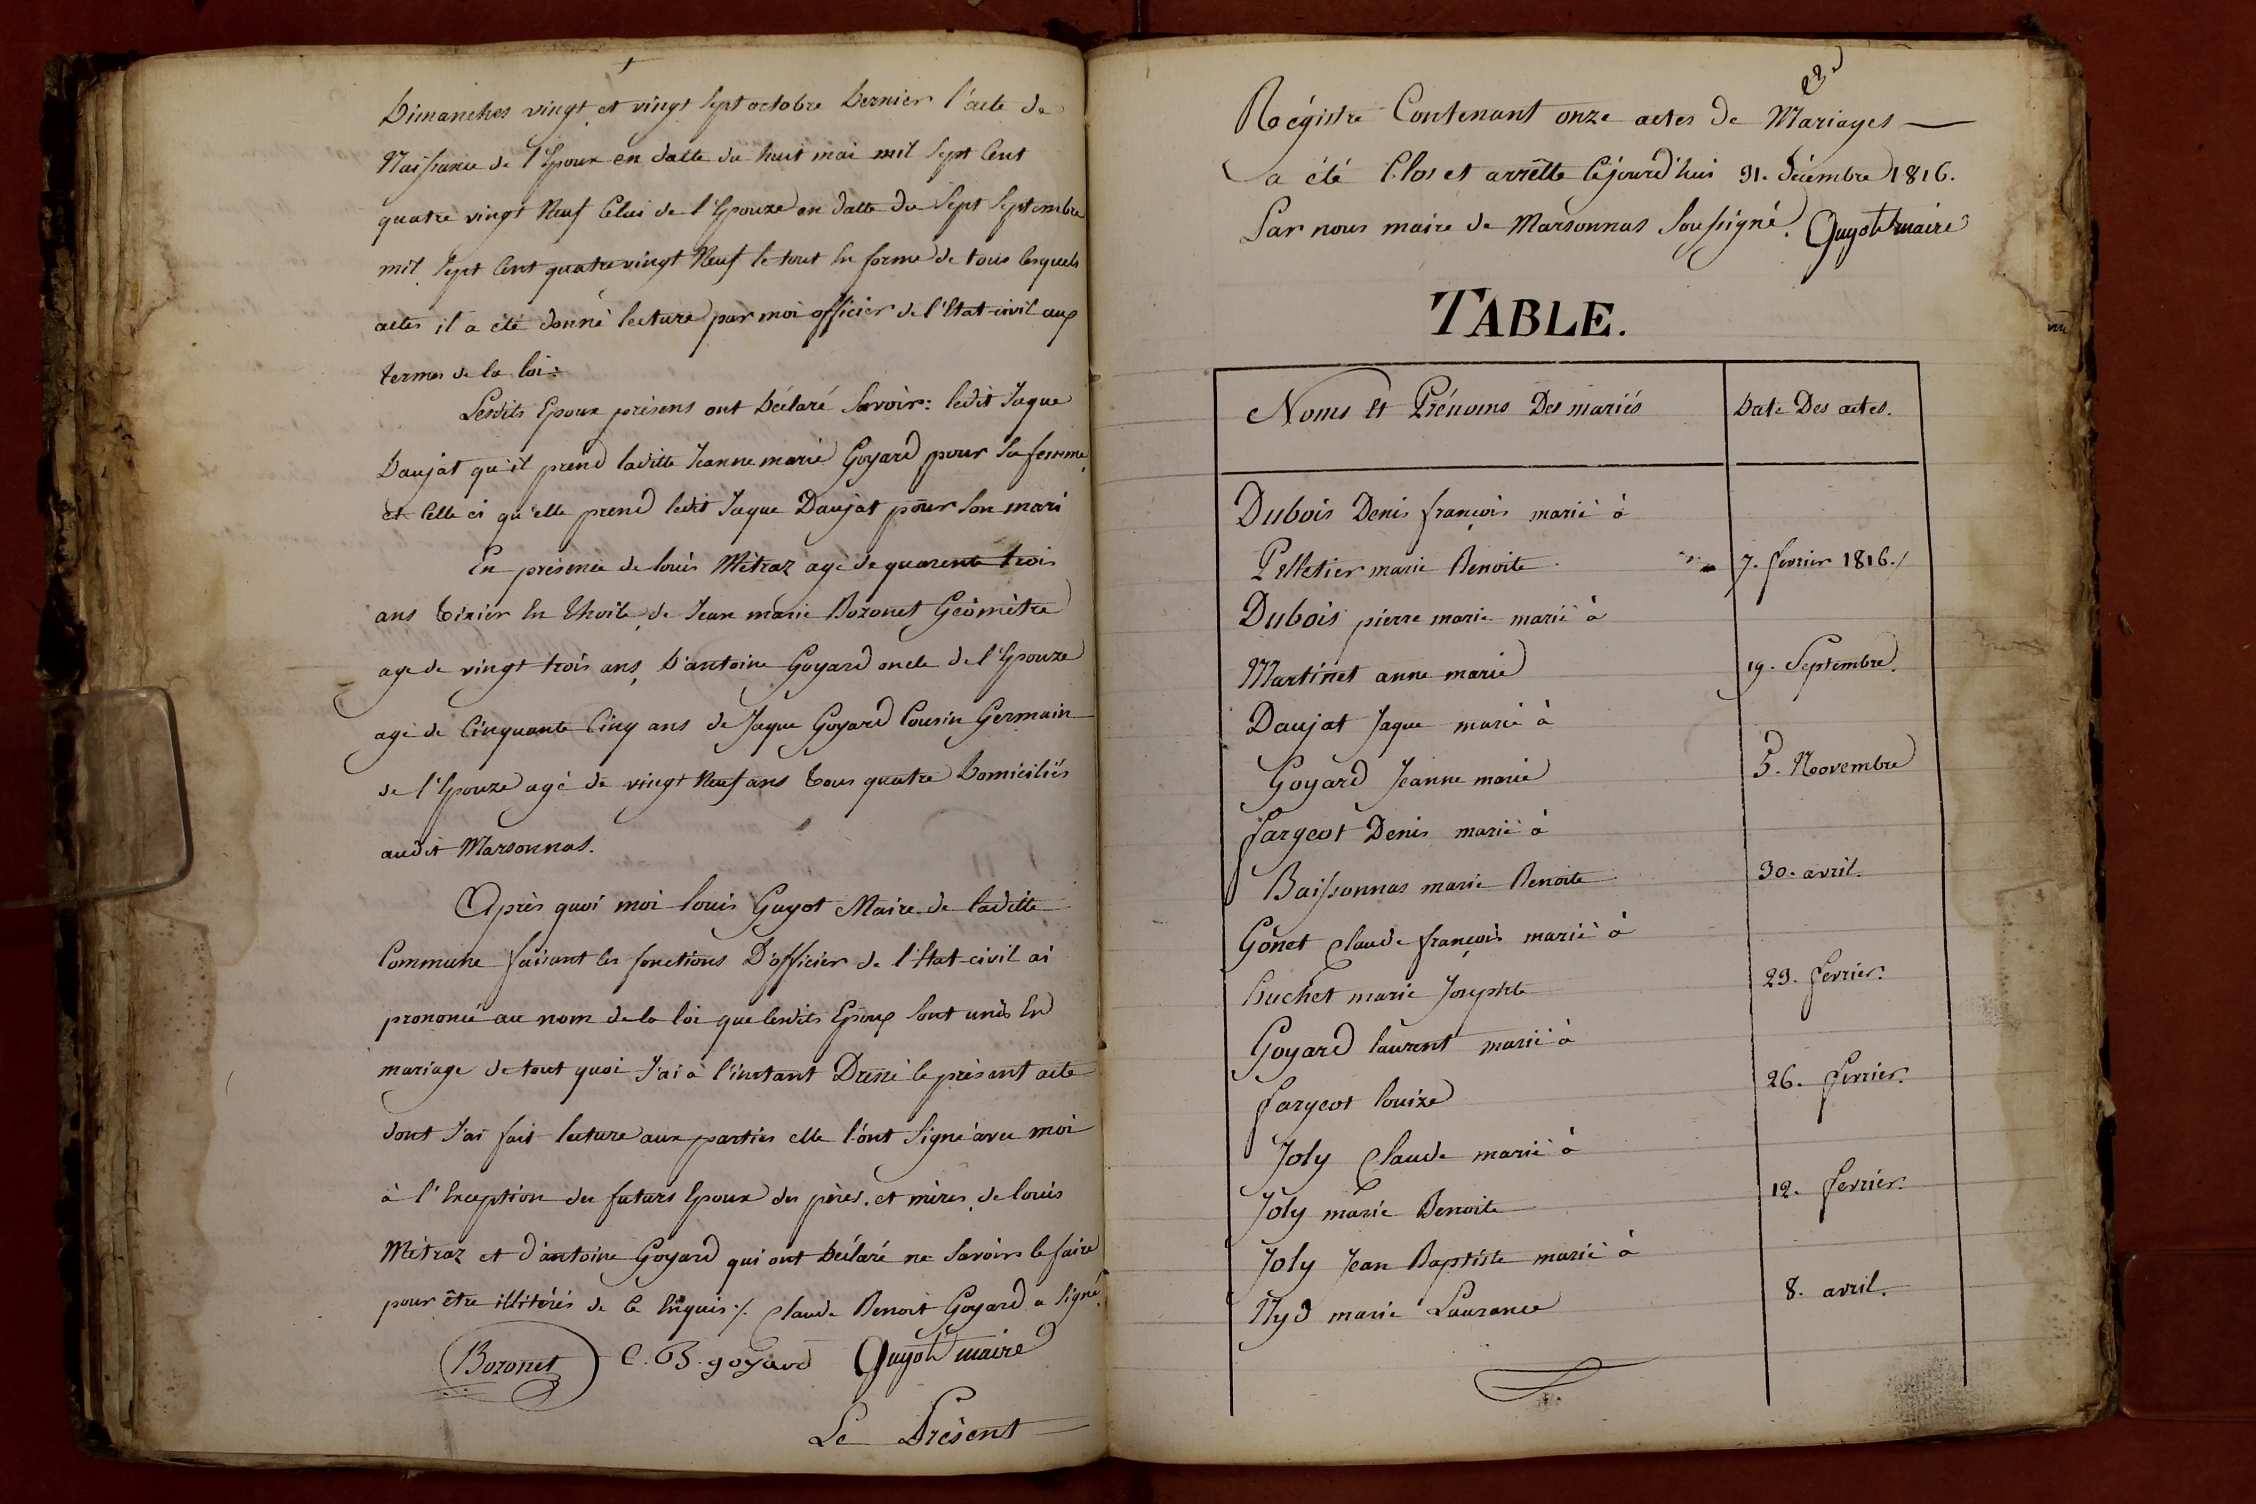 Dimanches vingt et vingt sept octobre Dernier l'acte de
Naissance de l'Epoux en datte du huit mai mil sept Cent
quatre vingt Neuf Celui de l'Epouze en datte du Sept Septembre
mil sept Cent quatre vingt Neuf le tout en forme de tous lesquels
actes il a été donné lecture par moi officier de l'Etat-civil aux
termes de la loi:
Lesdits Epoux présens ont Déclaré Savoir: ledit Jaque
Daujat qu'il prend laditte Jeanne marie Goyard pour Sa femme
et Celle ci qu'elle prend ledit Jaque Daujat pour Son mari
En présence de louis Mètraz agé de quarente trois
ans tixier En thoile, de Jean marie Bozonet Géomètre
age de vingt trois ans, D'antoine Goyard oncle de l'Epouze
agé de Cinquante Cinq ans de Jaque Goyard Cousin Germain
de l'Epouze agé de vingt Neuf ans tous quatre Domiciliés
audit Marsonnas.
Après quoi moi louis Guyot Maire de laditte
Commune faisant les fonctions D'officier de l'Etat-civil ai
prononcé au nom de la loi que lesdits Epoux Sont unis En
mariage de tout quoi J'ai à l'instant Dressé le présent acte
dont J'ai fait lecture aux parties elle l'ont Signé avec moi
à l'Exception des futurs Epoux des pères et mères, de louis
Mètraz et d'antoine Goyard qui ont Déclaré ne Savoir le faire
pour être illitérés de Ce Enquis ./. Claude Benoit Goyard a Signé.
Bozonet C. B. goyard Guyot maire
Le Présent
22
Régistre Contenant onze actes de Mariages
a été Clos et arrêtté Cejourd'hui 31. décembre 1816.
Par nous maire de Marsonnas Soussigné. Guyot maire
TABLE.
Noms Et Prénoms Des mariés Date Des actes.
Dubois Denis françois marié à
Pelletier marie Benoite 7. fevrier 1816./
Dubois pierre marie marié à
Martinet anne marie 19. Septembre.
Daujat Jaque marié à
Goyard Jeanne marie 5. Novembre
fargeot Denis marié à
Baissonnas marie Benoite 30. avril.
Gonet Claude françois marié à
huchet marie Josephte 29. fevrier.
Goyard laurent marié à
fargeot louize 26. fevrier.
Joly Claude marié à
Joly marie Benoite 12. fevrier.
Joly Jean Baptiste marié à
Nyd marie Laurance 8. avril.